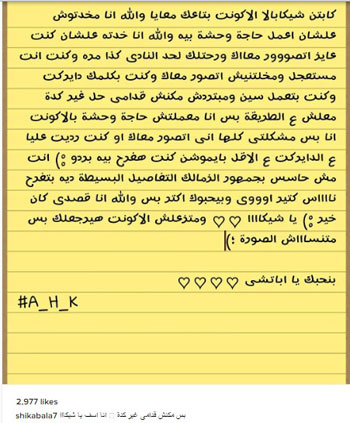 كابتن شيكابالا الاكونت بتاعك معايا والله انا مخدتوش
علشان اعمل حاجة وحشة بيه والله انا خدته علشان كنت
عايز اتصوووور معاااك ورحتلك لحد النادى كذا مره وكنت انت
مستعجل ومخلتنيش اتصور معاك وكنت بكلمك دايركت
وكنت بتعمل سين ومبتردش مكنش قدامى حل غير كدة
معلش ع الطريقة بس انا معملتش حاجة وحشة بالاكونت
انا بس مشكلتى كلها انى اتصور معاك او كنت رديت عليا
ع الدايركت ع الاقل بايموشن كنت هفرح بيه بردو :) انت
مش حاسس بجمهور الزمالك التفاصيل البسيطة ديه بتفرح
ناااس كتير اوووى وبيحبوك اكتر بس والله انا قصدى كان
خير :) يا شيكاااا ♡ ♡ ومتزعلش الاكونت هيرجعلك بس
متنساااش الصورة ;)|
بنحبك يا اباتشى ♡ ♡ ♡ ♡
#A_H_K
2,977 likes
shikabala7 بس مكنش قدامى غير كدة ♡ انا اسف يا شيكااا